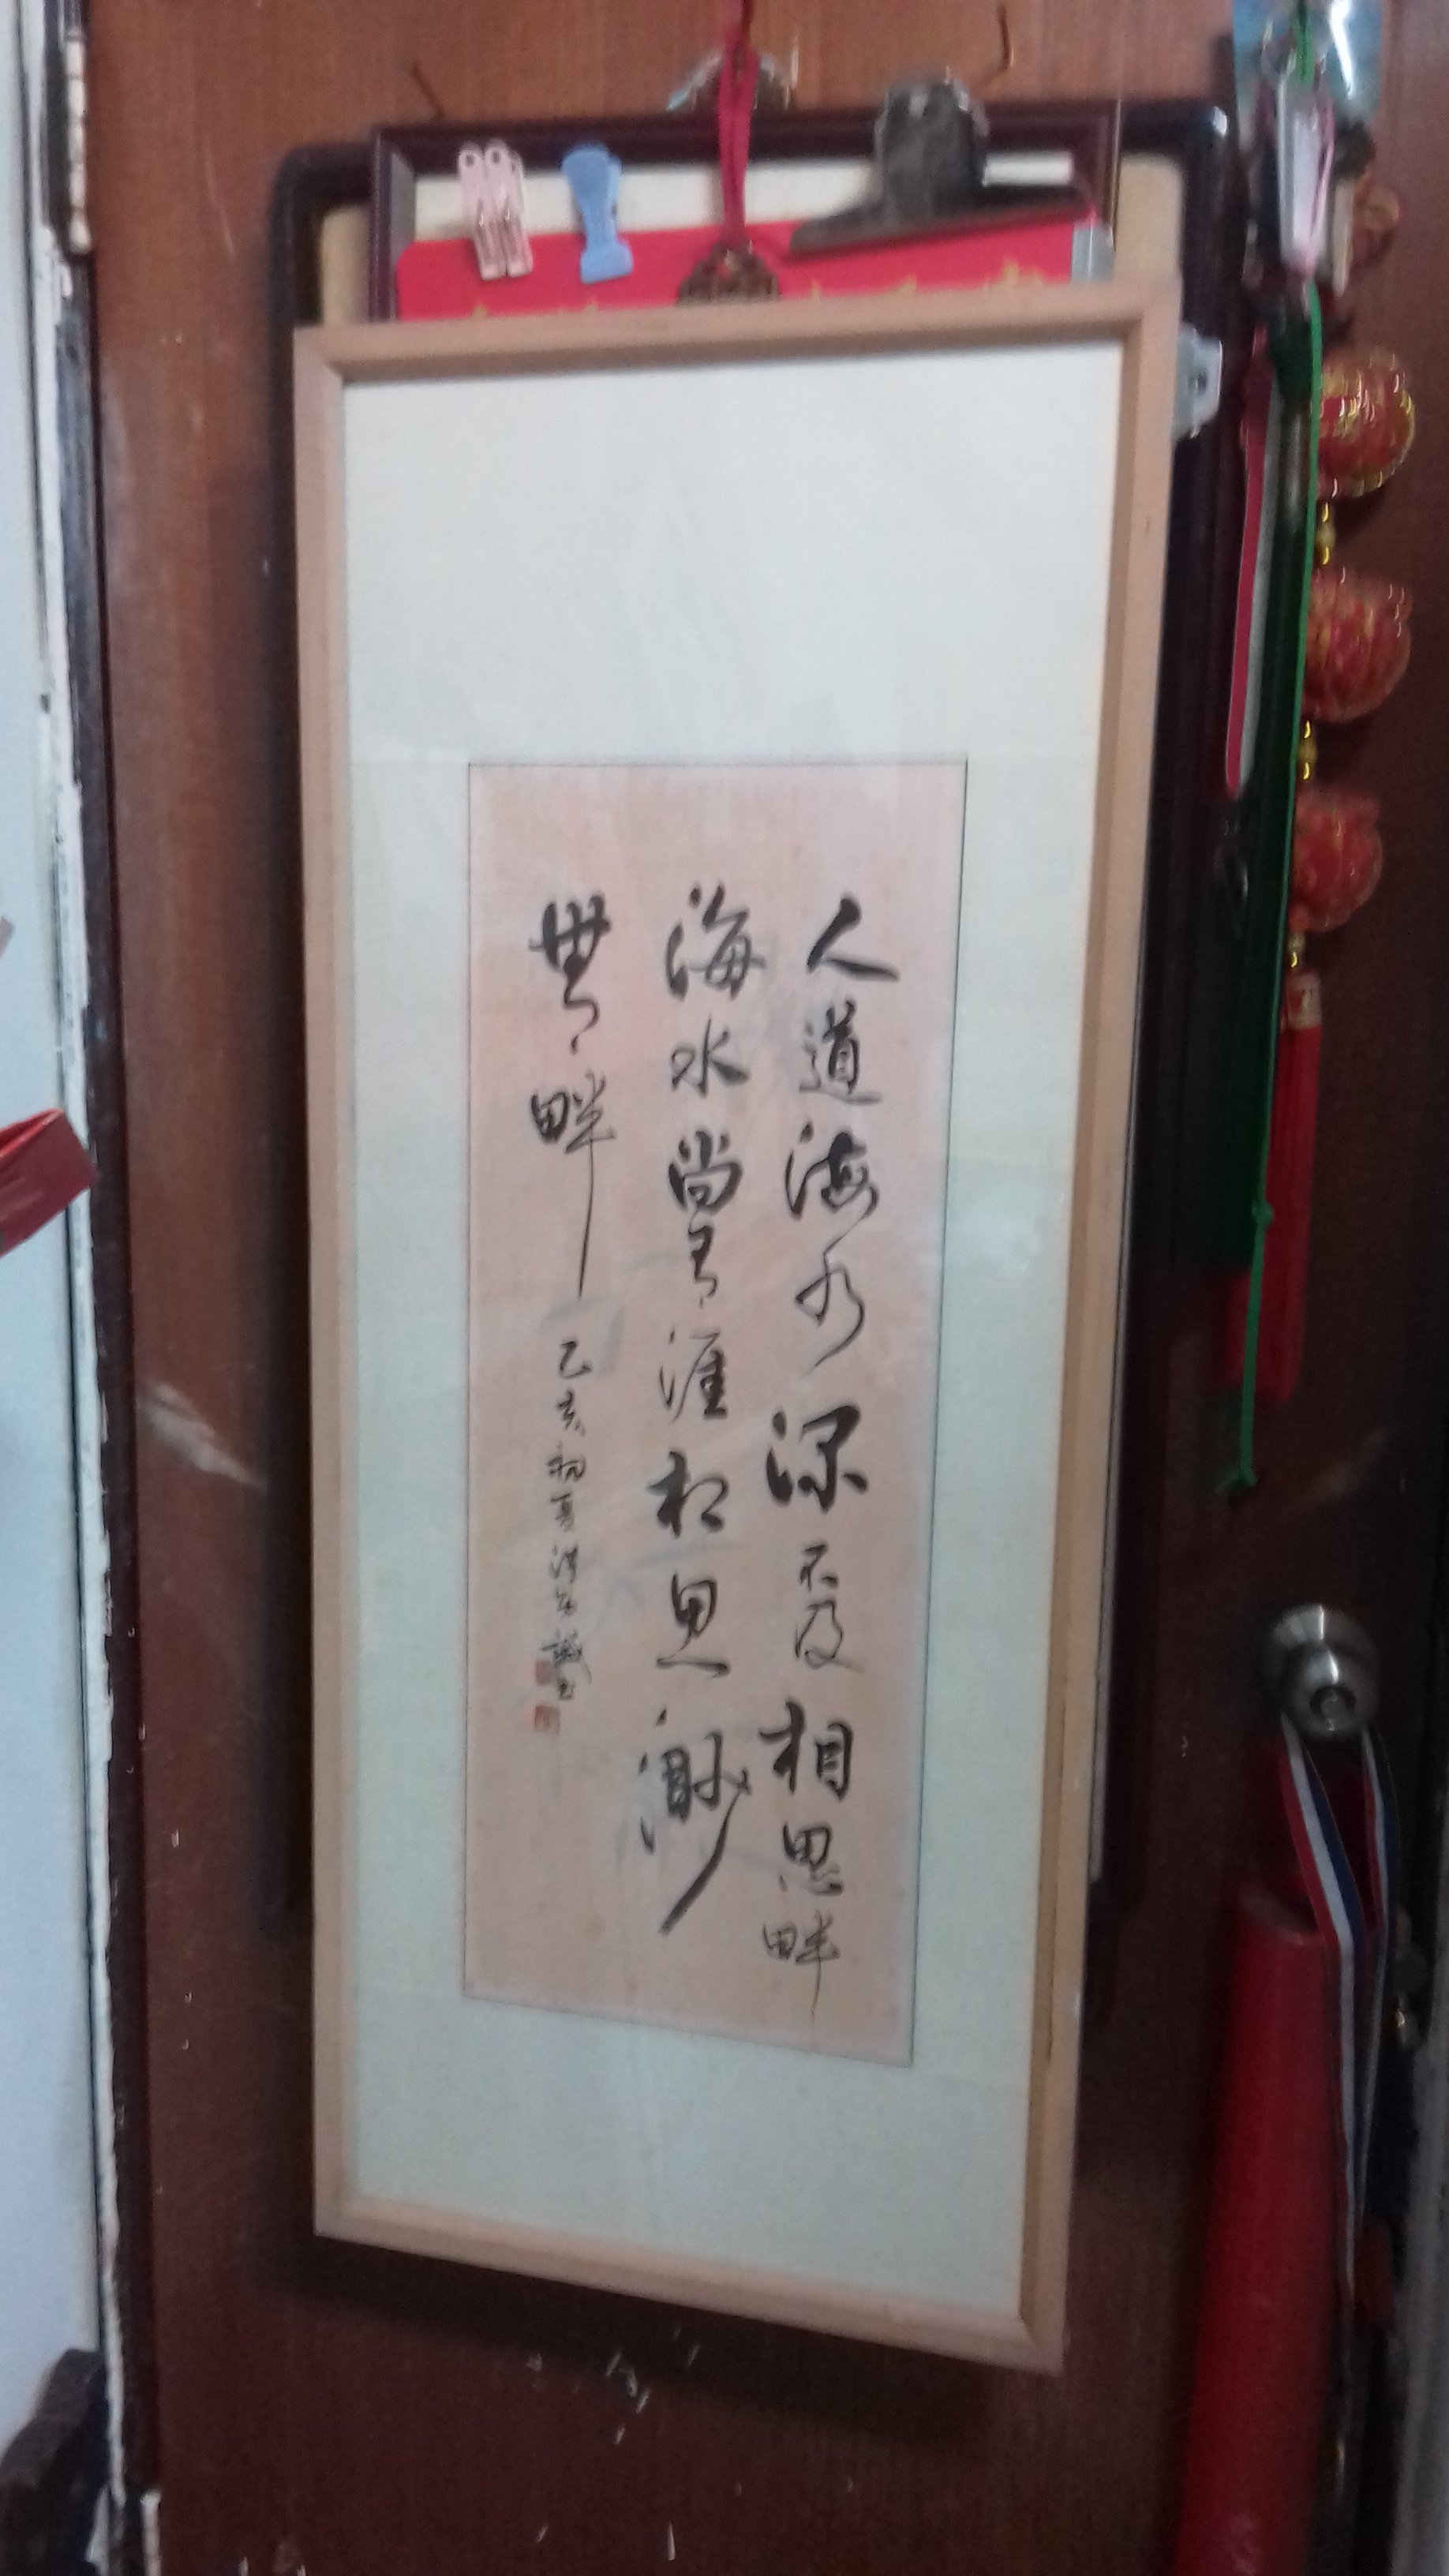 人道海水深不及相思畔
海水尚有涯相思渺
無畔
乙亥初夏